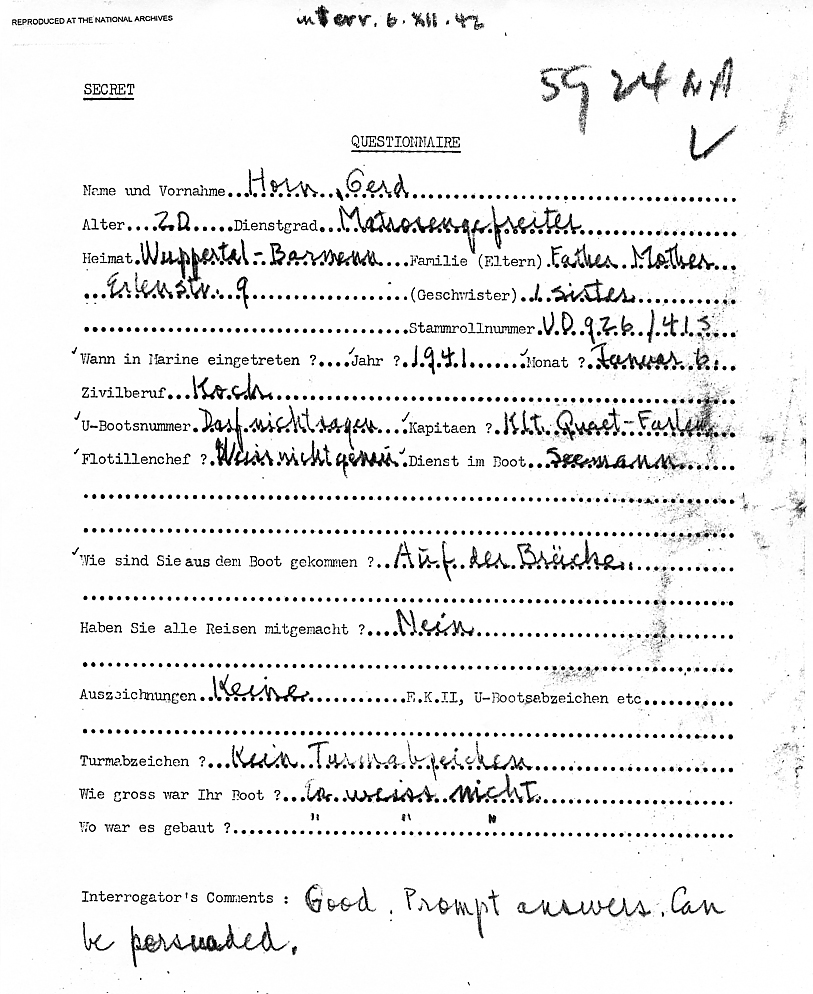 REPRODUCED AT THE NATIONAL ARCHIVES
interr. 6.XII.42
SECRET
5G 24 NA
✓
QUESTIONNAIRE
Name und Vorname...Horn, Gerd
Alter...20.....Dienstgrad...Matrosengefreiter
Heimat.Wuppertal-Barmenn...Familie (Eltern).Father Mother...
...Erlenstr. 9...(Geschwister).1 sister
...Stammrollnummer.U.D.926/41 S
✓Wann in Marine eingetreten ?....✓Jahr ?.1941.......✓Monat ?.Januar 6.
Zivilberuf...Koch
✓U-Bootsnummer.Darf nicht sagen...✓Kapitaen ?.Klt. Quaet-Faslem
✓Flotillenchef ?.Weiss nicht genau.✓Dienst im Boot...Seemann
✓Wie sind Sie aus dem Boot gekommen ?..Auf der Brücke
Haben Sie alle Reisen mitgemacht ?....Nein
Auszeichnungen..Keine............E.K.II, U-Bootsabzeichen etc
Turmabzeichen ?...Kein Turmabzeichen
Wie gross war Ihr Boot ?...weiss nicht
Wo war es gebaut ?... " " "
Interrogator's Comments : Good. Prompt answers. Can
be persuaded.